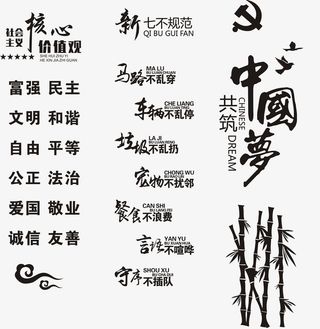 社会主义核心价值观
SHE HUI ZHU YI
HE XIN JIA ZHI GUAN
富强 民主
文明 和谐
自由 平等
公正 法治
爱国 敬业
诚信 友善
新七不规范
QI BU GUI FAN
马路不乱穿
MA LU
BU LUAN CHUAN
车辆不乱停
CHE LIANG
BU LUAN TING
垃圾不乱扔
LA JI
BU LUAN RENG
宠物不扰邻
CHONG WU
BU RAO LIN
餐食不浪费
CAN SHI
BU LANG FEI
言语不喧哗
YAN YU
BU XUAN HUA
守序不插队
SHOU XU
BU CHA DUI
共筑
中國夢
CHINESE
DREAM